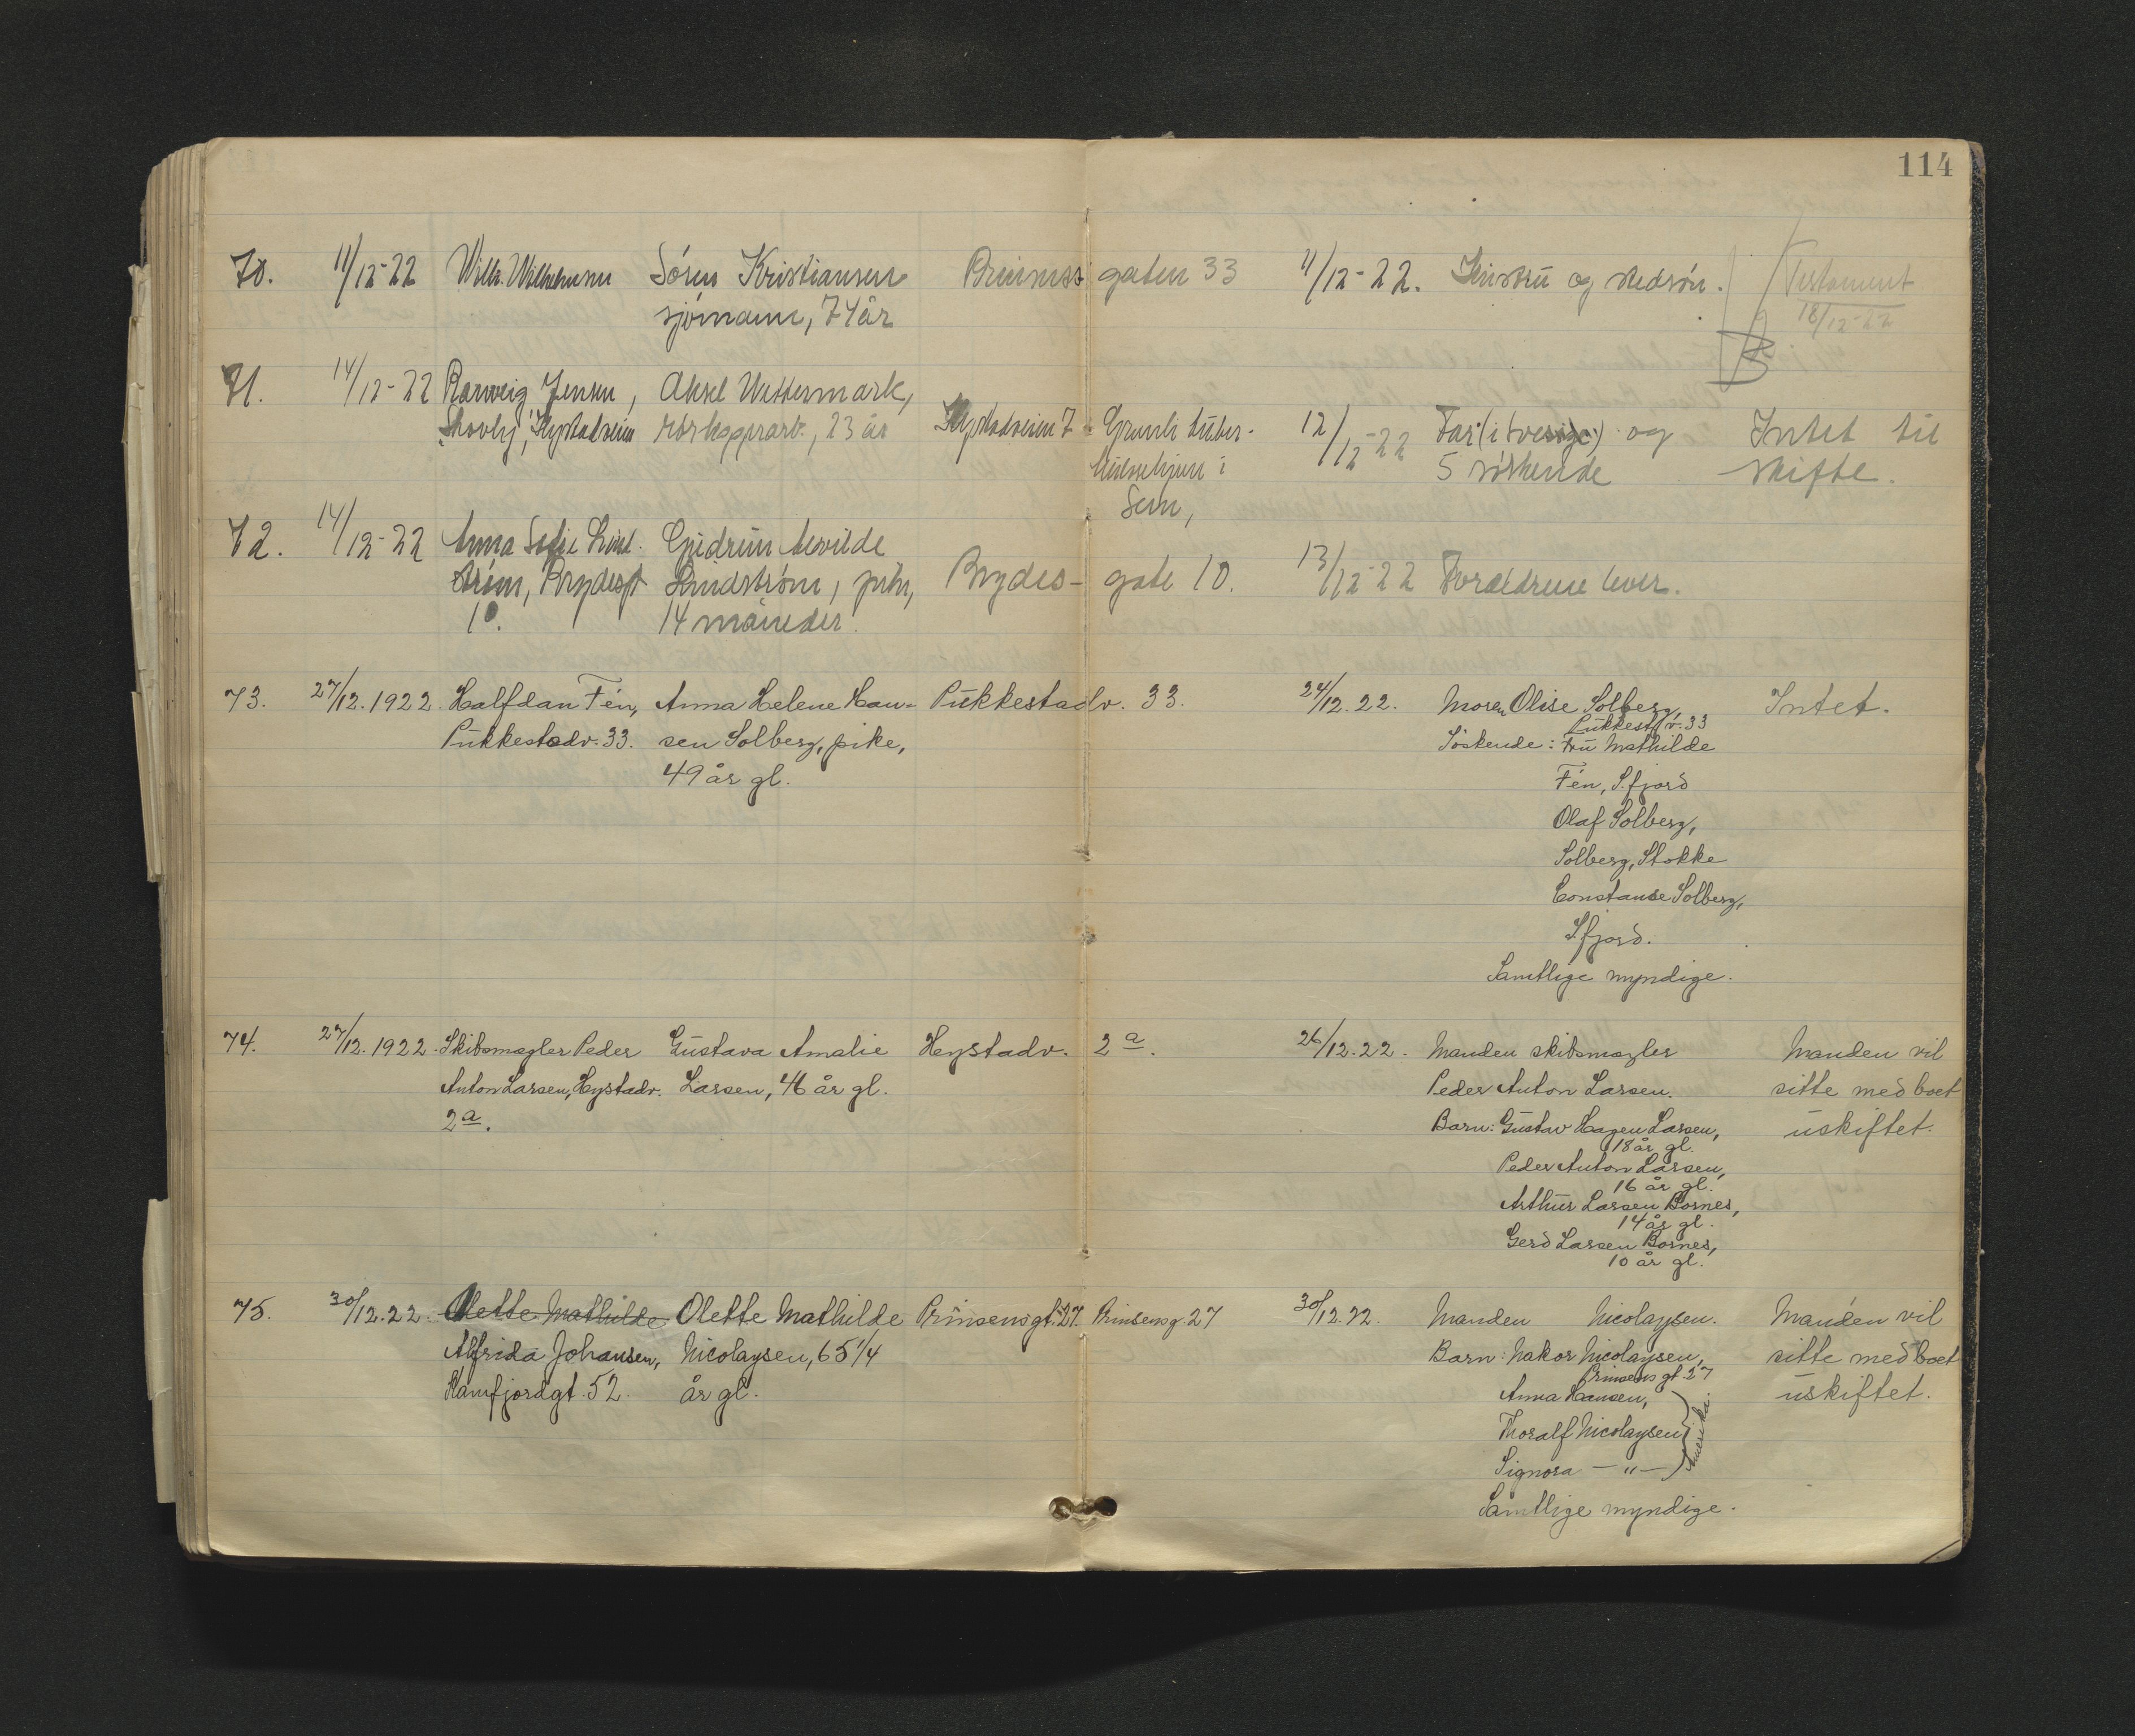 114
70. 11/12-22 Wilh. Wilhelmsen Søren Kristiansen Prinsens gaten 33 11/12-22. Hustru og stedsøn. Testament
sjømann, 74 år 18/12-22
71. 14/12-22 Jensen, Aksel Wettermark, 
Skovly, Hystadveien rørleggerarb., 23 år Hystadveien 7 Granli tuber- 12/12-22 Far (i Sverige) og Intet til
kulosehjem i 5 søskende skifte.
Sem,
72. 14/12-22 Anna Sofie Lind- Gudrun
strøm, Brydesgt Lindstrøm, pike, Brydes- gate 10. 13/12-22 Forældrene lever.
10. 14 måneder.
73. 27/12.1922. Halfdan Fén, Anna Helene Han- Pukkestadv. 33. 24/12.22. Moren Olise Solberg, Intet.
Pukkest.v. 33
Pukkestadv. 33. sen Solberg, pike, Søskende: Fru Mathilde
49 år gl. Fén, S.fjord
Olaf Solberg,
Solberg, Stokke
Constanse Solberg,
S.fjord.
Samtlige myndige.
74. 27/12.1922. Skibsmægler Peder Gustava Amalie Hystadv. 2a. 26/12.22. Manden skibsmægler Manden vil
Anton Larsen, Hystadv. Larsen, 46 år gl. Peder Anton Larsen. sitte med boet
2a. Barn: Gustav Hagen Larsen, uskiftet.
18 år gl.
Peder Anton Larsen,
16 år gl.
Arthur Larsen Bornes,
14 år gl.
Gerd Larsen Bornes,
10 år gl.
75. 30/12.22. Olette Mathilde Olette Mathilde Prinsensgt. 27. Prinsensg. 27 30/12.22. Manden Nicolaysen. Manden vil
Alfrida Johansen, Nicolaysen, 65 1/4 Barn: Hakor Nicolaysen, sitte med boet
Prinsens gt. 27
Ramfjordgt. 52. år gl. Anna Hansen, uskiftet.
Thoralf Nicolaysen Amerika.
Signora — " —
Samtlige myndige.